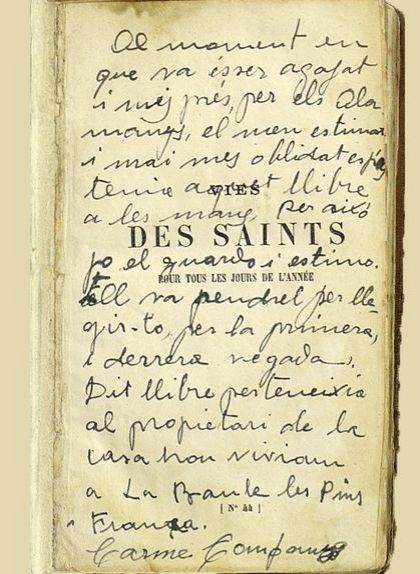 Al moment en
que va ésser agafat
i mig prés, per els Ala
mangs, el meu estimat
i mai mes oblidat espós
VIES
tenia aquest llibre
a les mans, per aixó
DES SAINTS
jo el guardo i estimo.
POUR TOUS LES JOURS DE L'ANNÉE
Ell va pendrel per lle
gir-lo, per la primera,
i derrera vegada.
Dit llibre perteneixia
al propietari de la
casa hon viviam
a La Baule les Pins
[ Nº 44 ]
França.
Carme Companys